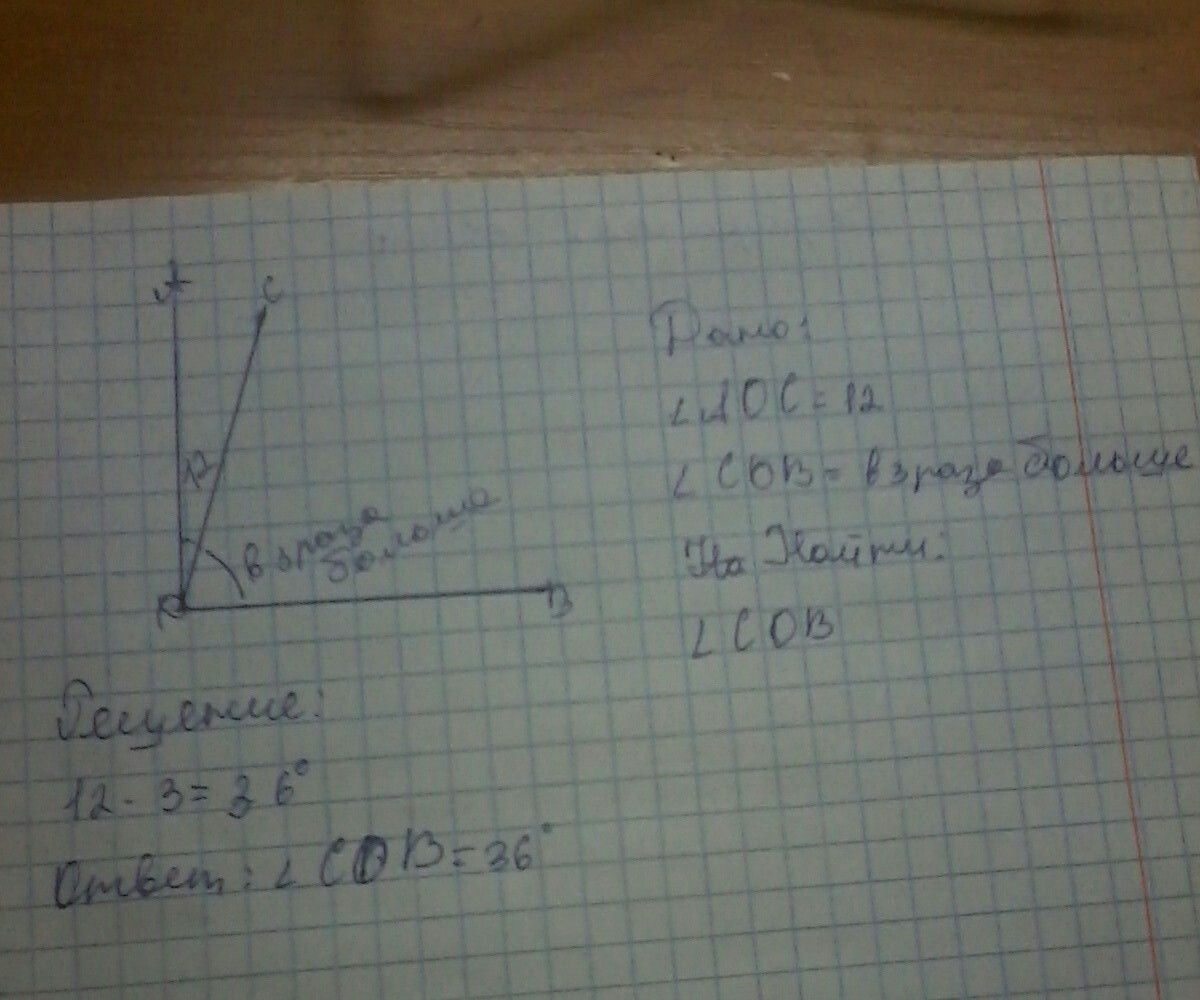 A
C
12
в 3 раза
больше
O
B
Дано:
∠AOC = 12
∠COB = в 3 раза больше
На Найти:
∠COB
Решение:
12 · 3 = 36°
Ответ: ∠COB = 36°